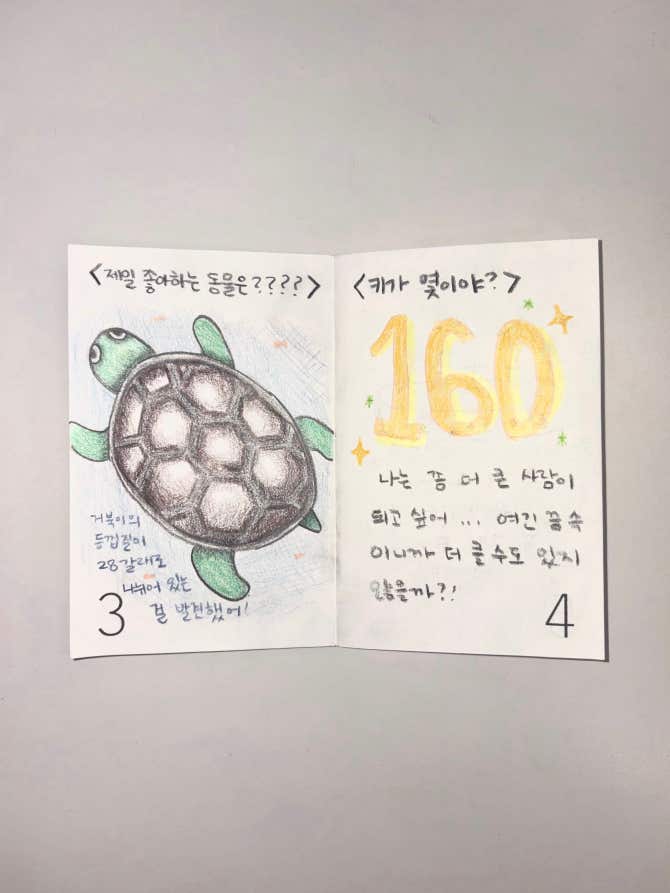 <제일 좋아하는 동물은????>
거북이의
등껍질이
28갈래로
나뉘어 있는
걸 발견했어!
3
<키가 몇이야?>
160
나는 좀 더 큰 사람이
되고 싶어... 여긴 꿈속
이니까 더 클 수도 있지
않을까?!
4